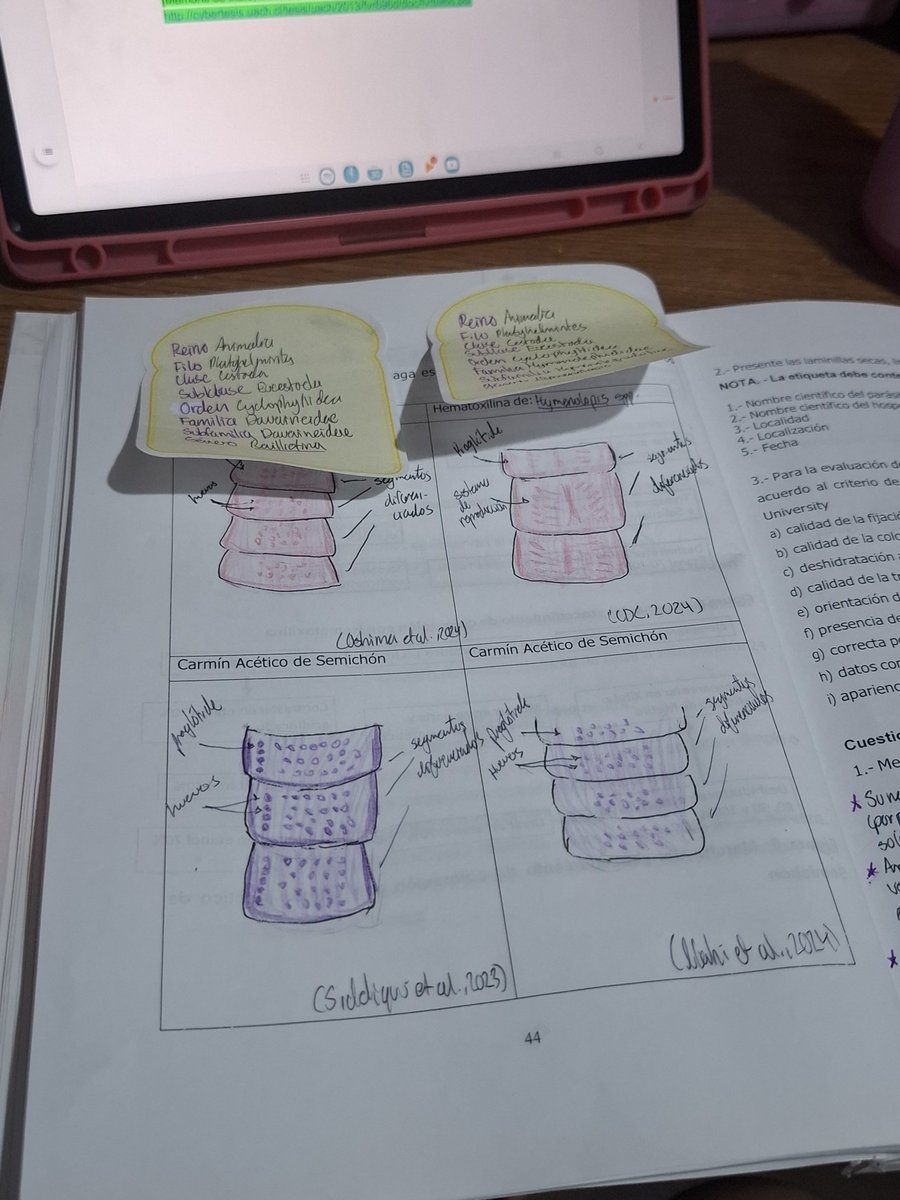 http://cybertesis.uach.cl/tesis/uach/2013/
Reino Animalia
Filo Platyhelmintes
Clase Cestoda
Subclase Eucestoda
Orden Cyclophyllidea
Familia Davaineidae
Subfamilia Davaineidae
Género Raillietina
Reino Animalia
Filo Platyhelmintes
Clase Cestoda
Subclase Eucestoda
Orden Cyclophyllidea
Familia Hymenolepididae
aga es
Hematoxilina de: Hymenolepis spp.
huevos
segmentos
diferen-
ciados
(Oshima et al., 2024)
Proglótide
sistema
de
reproducción
segmentos
diferenciados
(CDC, 2024)
Carmín Acético de Semichón
proglótide
huevos
segmentos
diferenciados
(Siddiqui et al., 2023)
Carmín Acético de Semichón
proglótide
huevos
segmentos
diferenciados
et al., 2024)
44
2.- Presente las laminillas secas,
NOTA. - La etiqueta debe conte
1.- Nombre científico del parás
2.- Nombre científico del hosp
3.- Localidad
4.- Localización
5.- Fecha
3.- Para la evaluación de
acuerdo al criterio de
University
a) calidad de la fijació
b) calidad de la colo
c) deshidratación
d) calidad de la t
e) orientación d
f) presencia de
g) correcta p
h) datos cor
i) aparienc
Cuestio
1.- Me